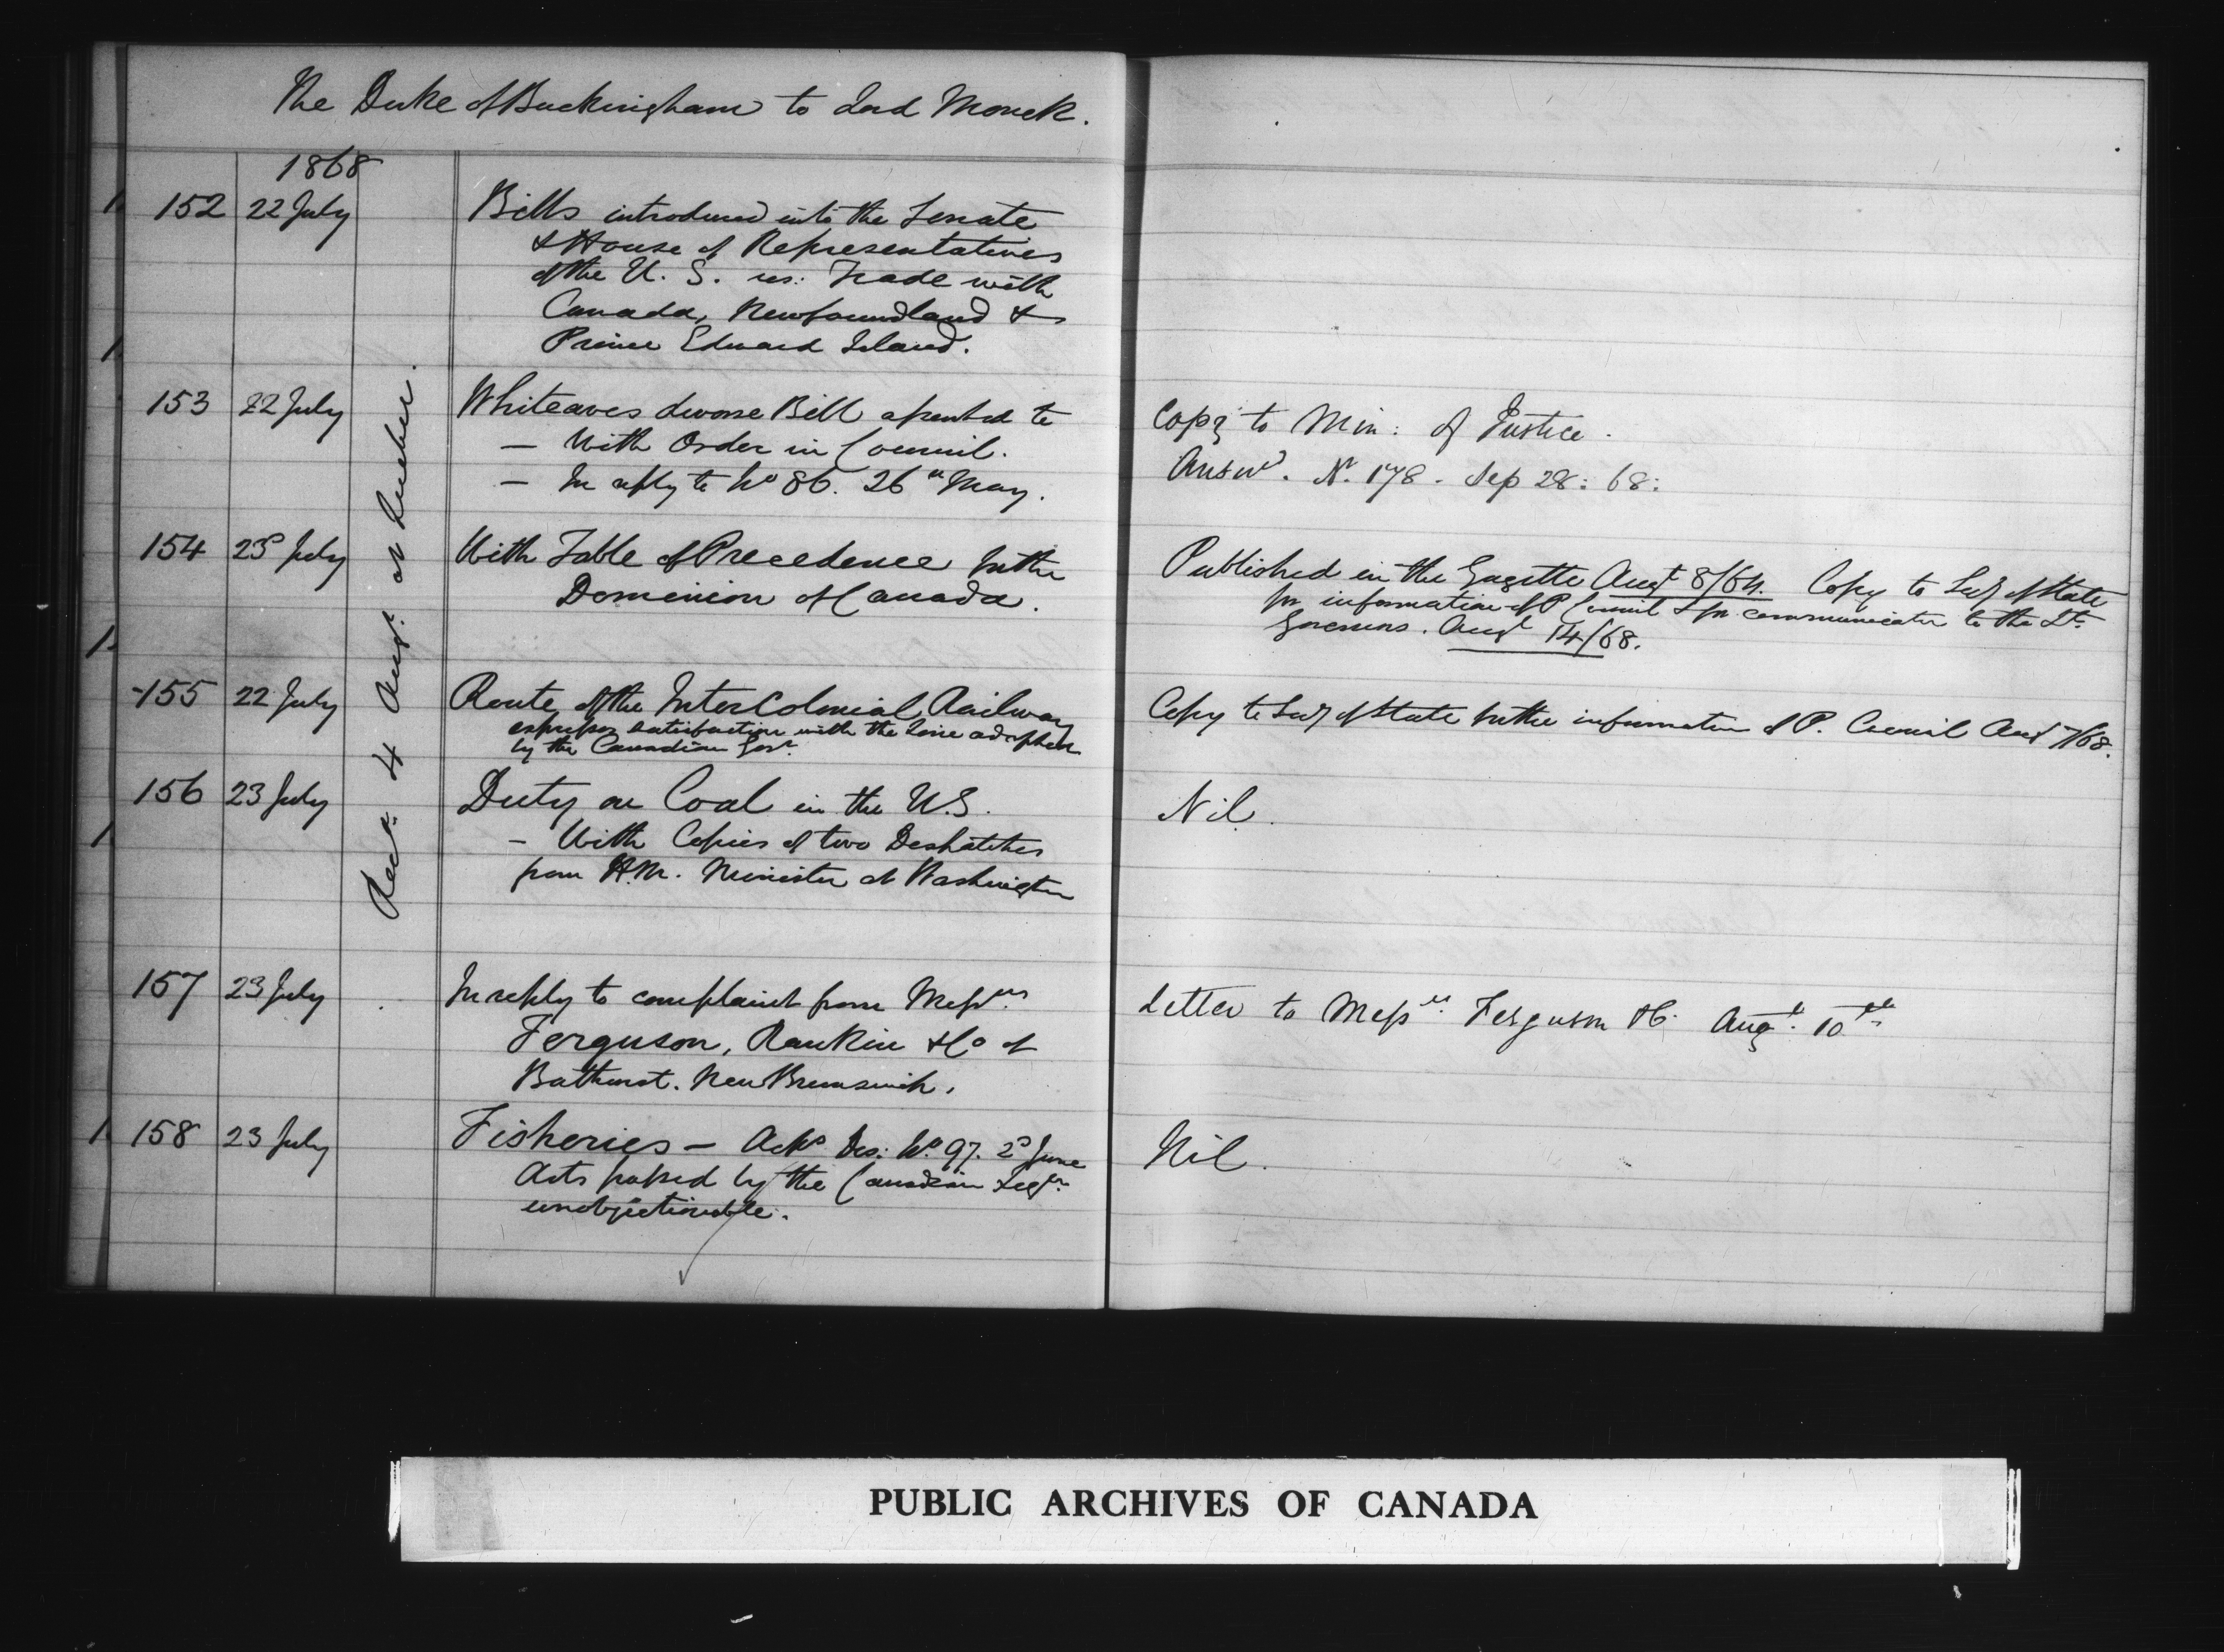 The Duke of Buckingham to Lord Monck.
1868
152 22 July Bills introduced into the Senate
& House of Representatives
of the U. S. res: Trade with
Canada, Newfoundland &
Prince Edward Island.
Recd. 4 Augt. at Quebec.
153 22 July Whiteaves divorce Bill assented to
— With Order in Council.
— In reply to No 86. 26th May.
Copy to Min: of Justice.
Answd. No. 178. Sep 28: 68:
154 23 July With Table of Precedence for the
Dominion of Canada.
Published in the Gazette Augt 8/64. Copy to Secy of State
for information of P Council & for communication to the Lt.
Governors. Augt 14/68.
155 22 July Route of the InterColonial Railway
expresses satisfaction with the line adopted
by the Canadian Govt.
Copy to Secy of State for the information of P. Council Aut 7/68.
156 23 July Duty on Coal in the U.S.
— With Copies of two Deshatches
from H.M. Minister at Washington
Nil.
157 23 July In reply to complaint from Messrs
Ferguson, Rankin & Co of
Bathurst. New Brunswick.
Letter to Messrs Ferguson & C. Augt. 10th
158 23 July Fisheries — Acks Des: No. 97. 2d June
Acts passed by the Canadian Legre
unobjectionable.
Nil.
PUBLIC ARCHIVES OF CANADA